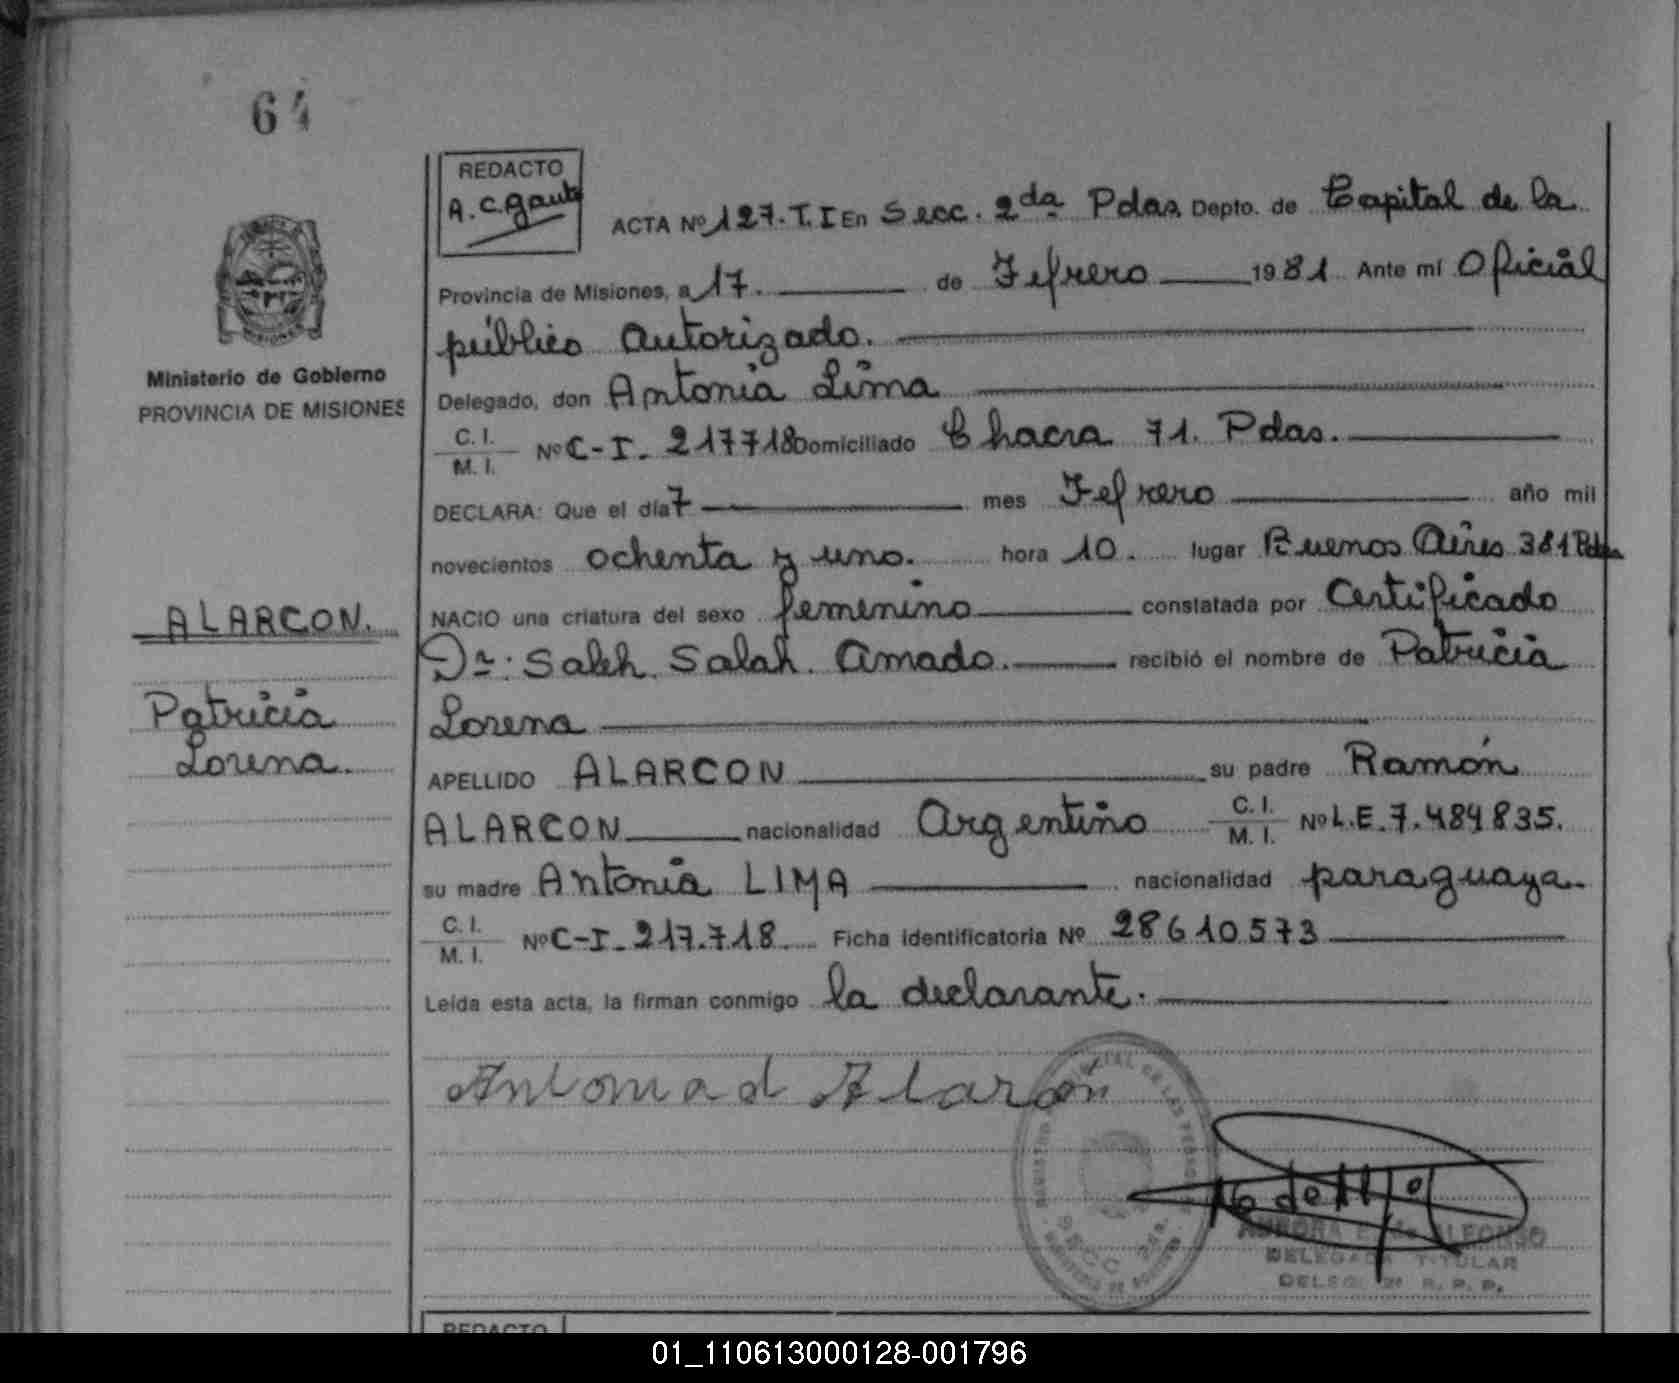 64
REDACTO
A.C. Gaute
ACTA Nº 127. T. I En Secc. 2da Pdas. Depto. de Capital de la
Provincia de Misiones, a 17. de Febrero 1981 Ante mí Oficial
público Autorizado.
Delegado, don Antonia Lima
C. I.
M. I. Nº C-I. 217718 Domiciliado Chacra 71. Pdas.
DECLARA: Que el día 7 mes Febrero año mil
novecientos ochenta y uno. hora 10. lugar Buenos Aires 381 Pdas
NACIO una criatura del sexo femenino constatada por Certificado
Dr: Saleh. Salah. Amado. recibió el nombre de Patricia
Lorena
APELLIDO ALARCON su padre Ramón
ALARCON nacionalidad Argentino C. I. M. I. Nº L.E. 7.484835.
su madre Antonia LIMA nacionalidad paraguaya.
C. I.
M. I. Nº C-I. 217.718. Ficha identificatoria Nº 28610573
Leída esta acta, la firman conmigo la declarante.
Ministerio de Gobierno
PROVINCIA DE MISIONES
ALARCON.
Patricia
Lorena.
Alarcón
SECC 2da.
AURORA ALFONSO
DELEGADA TITULAR
DELEG. 2ª R. P. P.
REDACTO
01_110613000128-001796